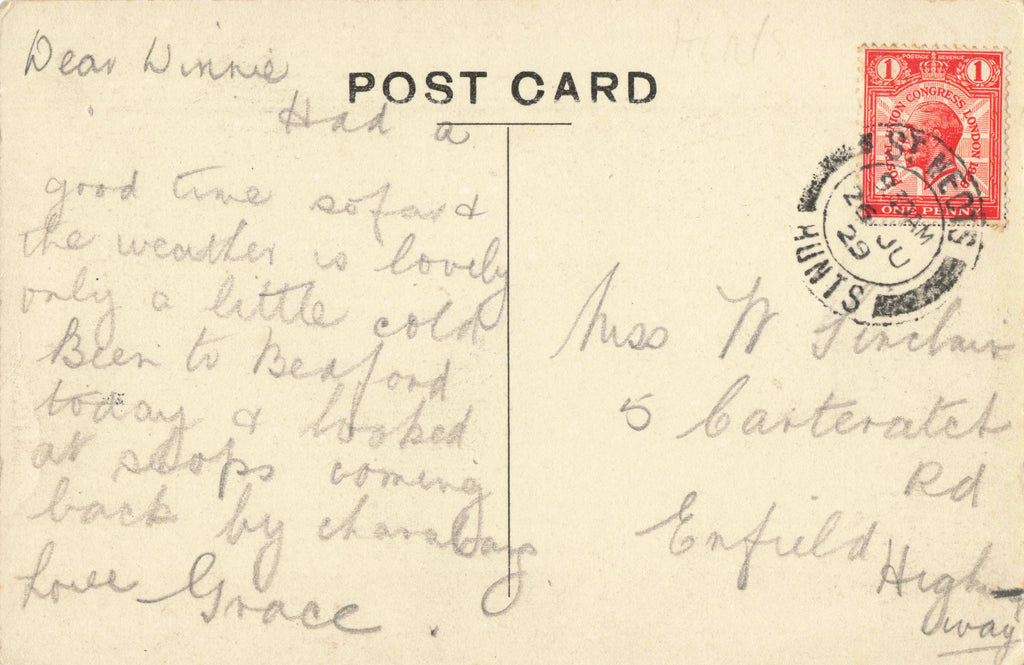 Dear Winnie
POST CARD
Had a
good time so far &
the weather is lovely
only a little cold
Been to Bedford
today & looked
at shops coming
back by charabang
Love Grace.
1 POSTAGE REVENUE 1
POSTAL UNION CONGRESS LONDON 1929
ONE PENNY
ST NEOTS
AM
26 JU
29
HUNTS
Miss W Sinclair
5 Carteratch
Rd
Enfield
High-
way